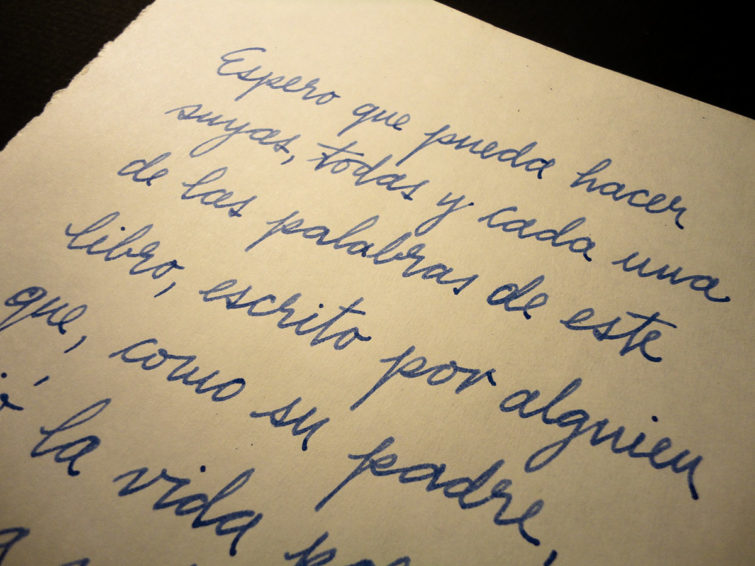 Espero que pueda hacer
suyas, todas y cada una
de las palabras de este
libro, escrito por alguien
que, como su padre,
la vida